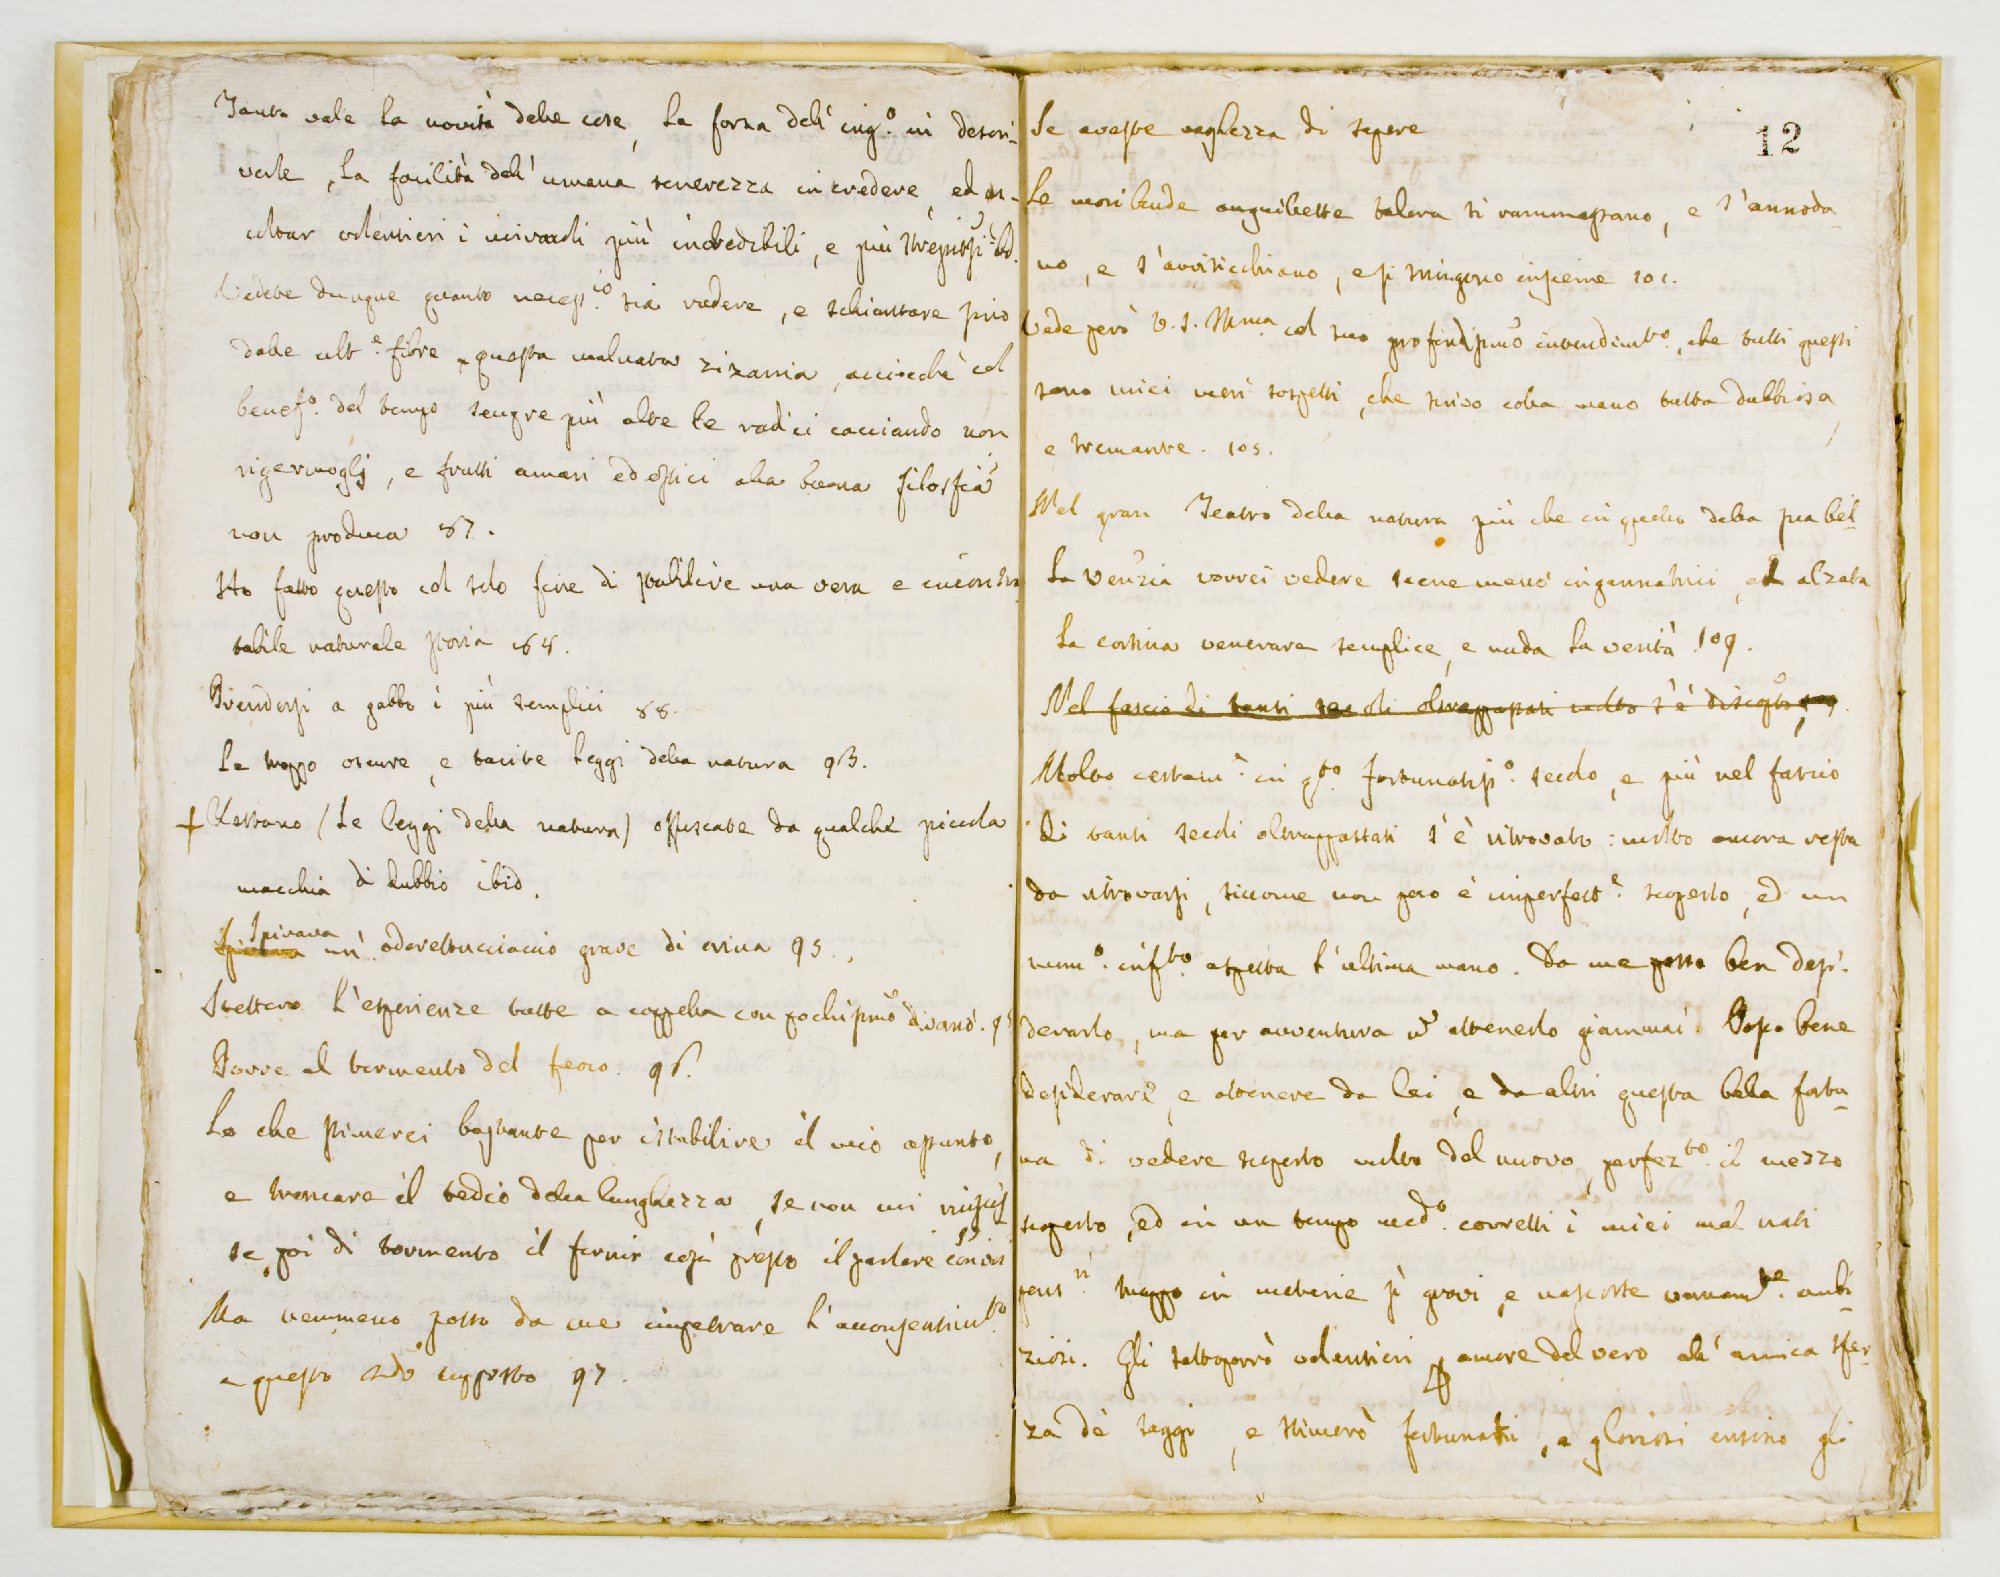 Tanto vale la novità delle cose, la forza dell' ing.o in descri-
verle, la facilità dell' umana tenerezza in credere, ed as-
coltar volentieri i miracoli più incredibili, e più strepitosi
Vedete dunque quanto necess.io sia radere, e schiantare
dalle ult.e fibre questa malnata zizania, acciocchè col
benef.o del tempo sempre più alte le radici cacciando non
rigermoglj, e frutti amari ed ostici alla buona filosofia
non produca 87.
Ho fatto questo col solo fine di stabilire una vera e incontras
tabile naturale storia
Prendersi a gabbo i più semplici 88.
Le troppo oscure, e tacite leggi della natura 93.
+ Restano (le leggi della natura) offuscate da qualche piccola
macchia di dubbio ibid.
Spirava un' odorettucciaccio grave di orina 95.
Stettero l'esperienze tutte a coppella con pochissimo divario. 95
Porre al tormento del fuoco. 96.
Lo che stimerei bastante per istabilire il mio assunto,
e troncare il tedio della lunghezza, se non mi riuscis
se poi di tormento il fornir così presto il parlare con
Ma nemmeno posso da me impetrare l'acconsentim.to
a questo supposto 97.
Se aveste vaghezza di sapere
12
Le moribonde anguillette talora si rammassano, e s'annoda
no, e s'avviticchiano, e si stringono insieme 101.
Vede però V. S. Illma col suo profondissimo intendimto, che tutti questi
sono miei meri sospetti, che scrivo colla mano tutta dubbiosa,
e tremante. 105.
Nel gran Teatro della natura più che in quello della sua bel-
la Venezia vorrei vedere scene meno ingannatrici, ed alzata
la cortina venerare semplice, e nuda la verità 109.
Nel fascio di tanti secoli oltrappassati molto s'è discoperto
Molto certam.e in q.to fortunatiss.o secolo, e più nel fascio
di tanti secoli oltrappassati s'è ritrovato: molto ancora resta
da ritrovarsi, siccome non poco è imperfett.e scoperto, ed un
num.o inf.to aspetta l'ultima mano. Da me posso ben desi-
derarlo, ma per avventura ottenerlo giammai. Posso bene
desiderare, e ottenere da lei, e da altri questa bella fortu-
na di vedere scoperto molto del nuovo, perfez.to il mezzo
scoperto, ed in un tempo med.o corretti i miei mal nati
pens.ri troppo in materie sì gravi, e nascoste vanam.te ambi-
ziosi. Gli sottoporrò volentieri per amore del vero all' amica sfer-
za de' saggi, e stimerò fortunati, e gloriosi insino gli